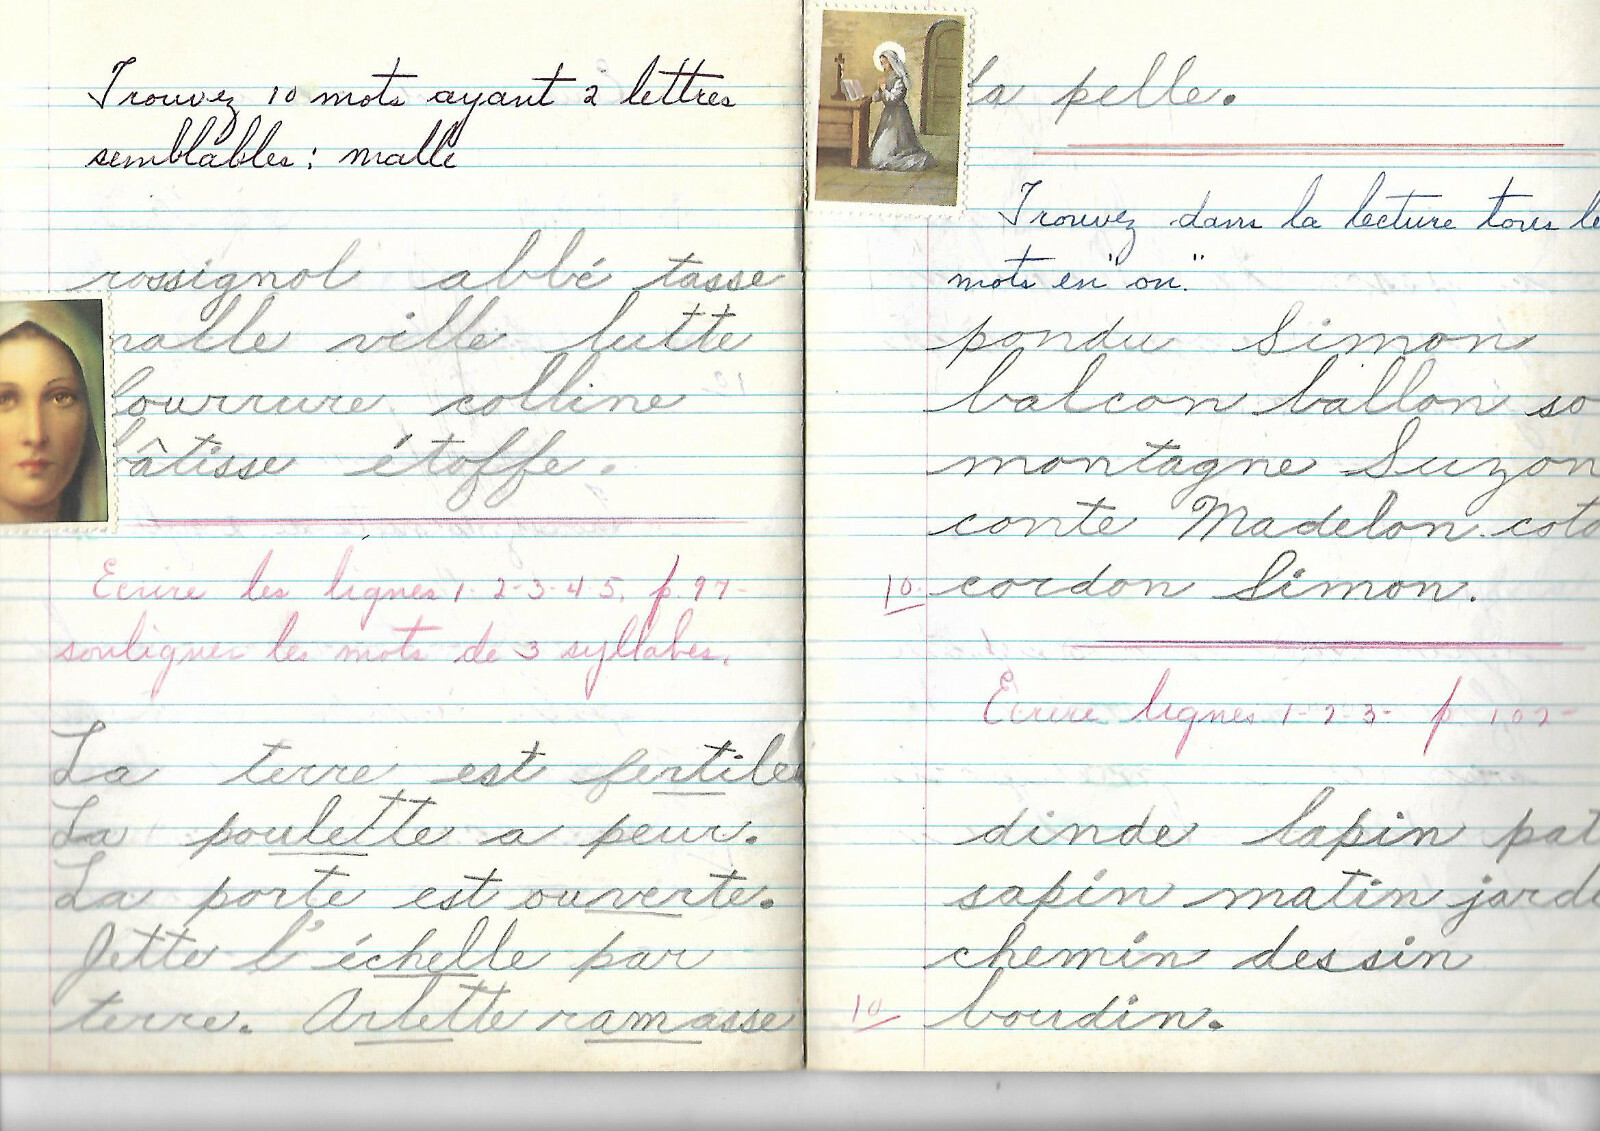 Trouvez 10 mots ayant 2 lettres
semblables : malle
rossignol abbé tasse
malle ville lutte
bourrure colline
bâtisse étoffe.
Ecrire les lignes 1-2-3-4-5, p. 97-
souligner les mots de 3 syllabes.
La terre est fertile
La poulette a peur.
La porte est ouverte.
Jette l'échelle par
terre. Arlette ramasse
la pelle.
Trouvez dans la lecture tous le
mots en "on".
pondu Simon
balcon ballon so
montagne Suzon
conte Madelon coto
10. cordon Simon.
Ecrire lignes 1-2-3- p 102-
dinde lapin pat
sapin matin jardi
chemin dessin
10 boudin.